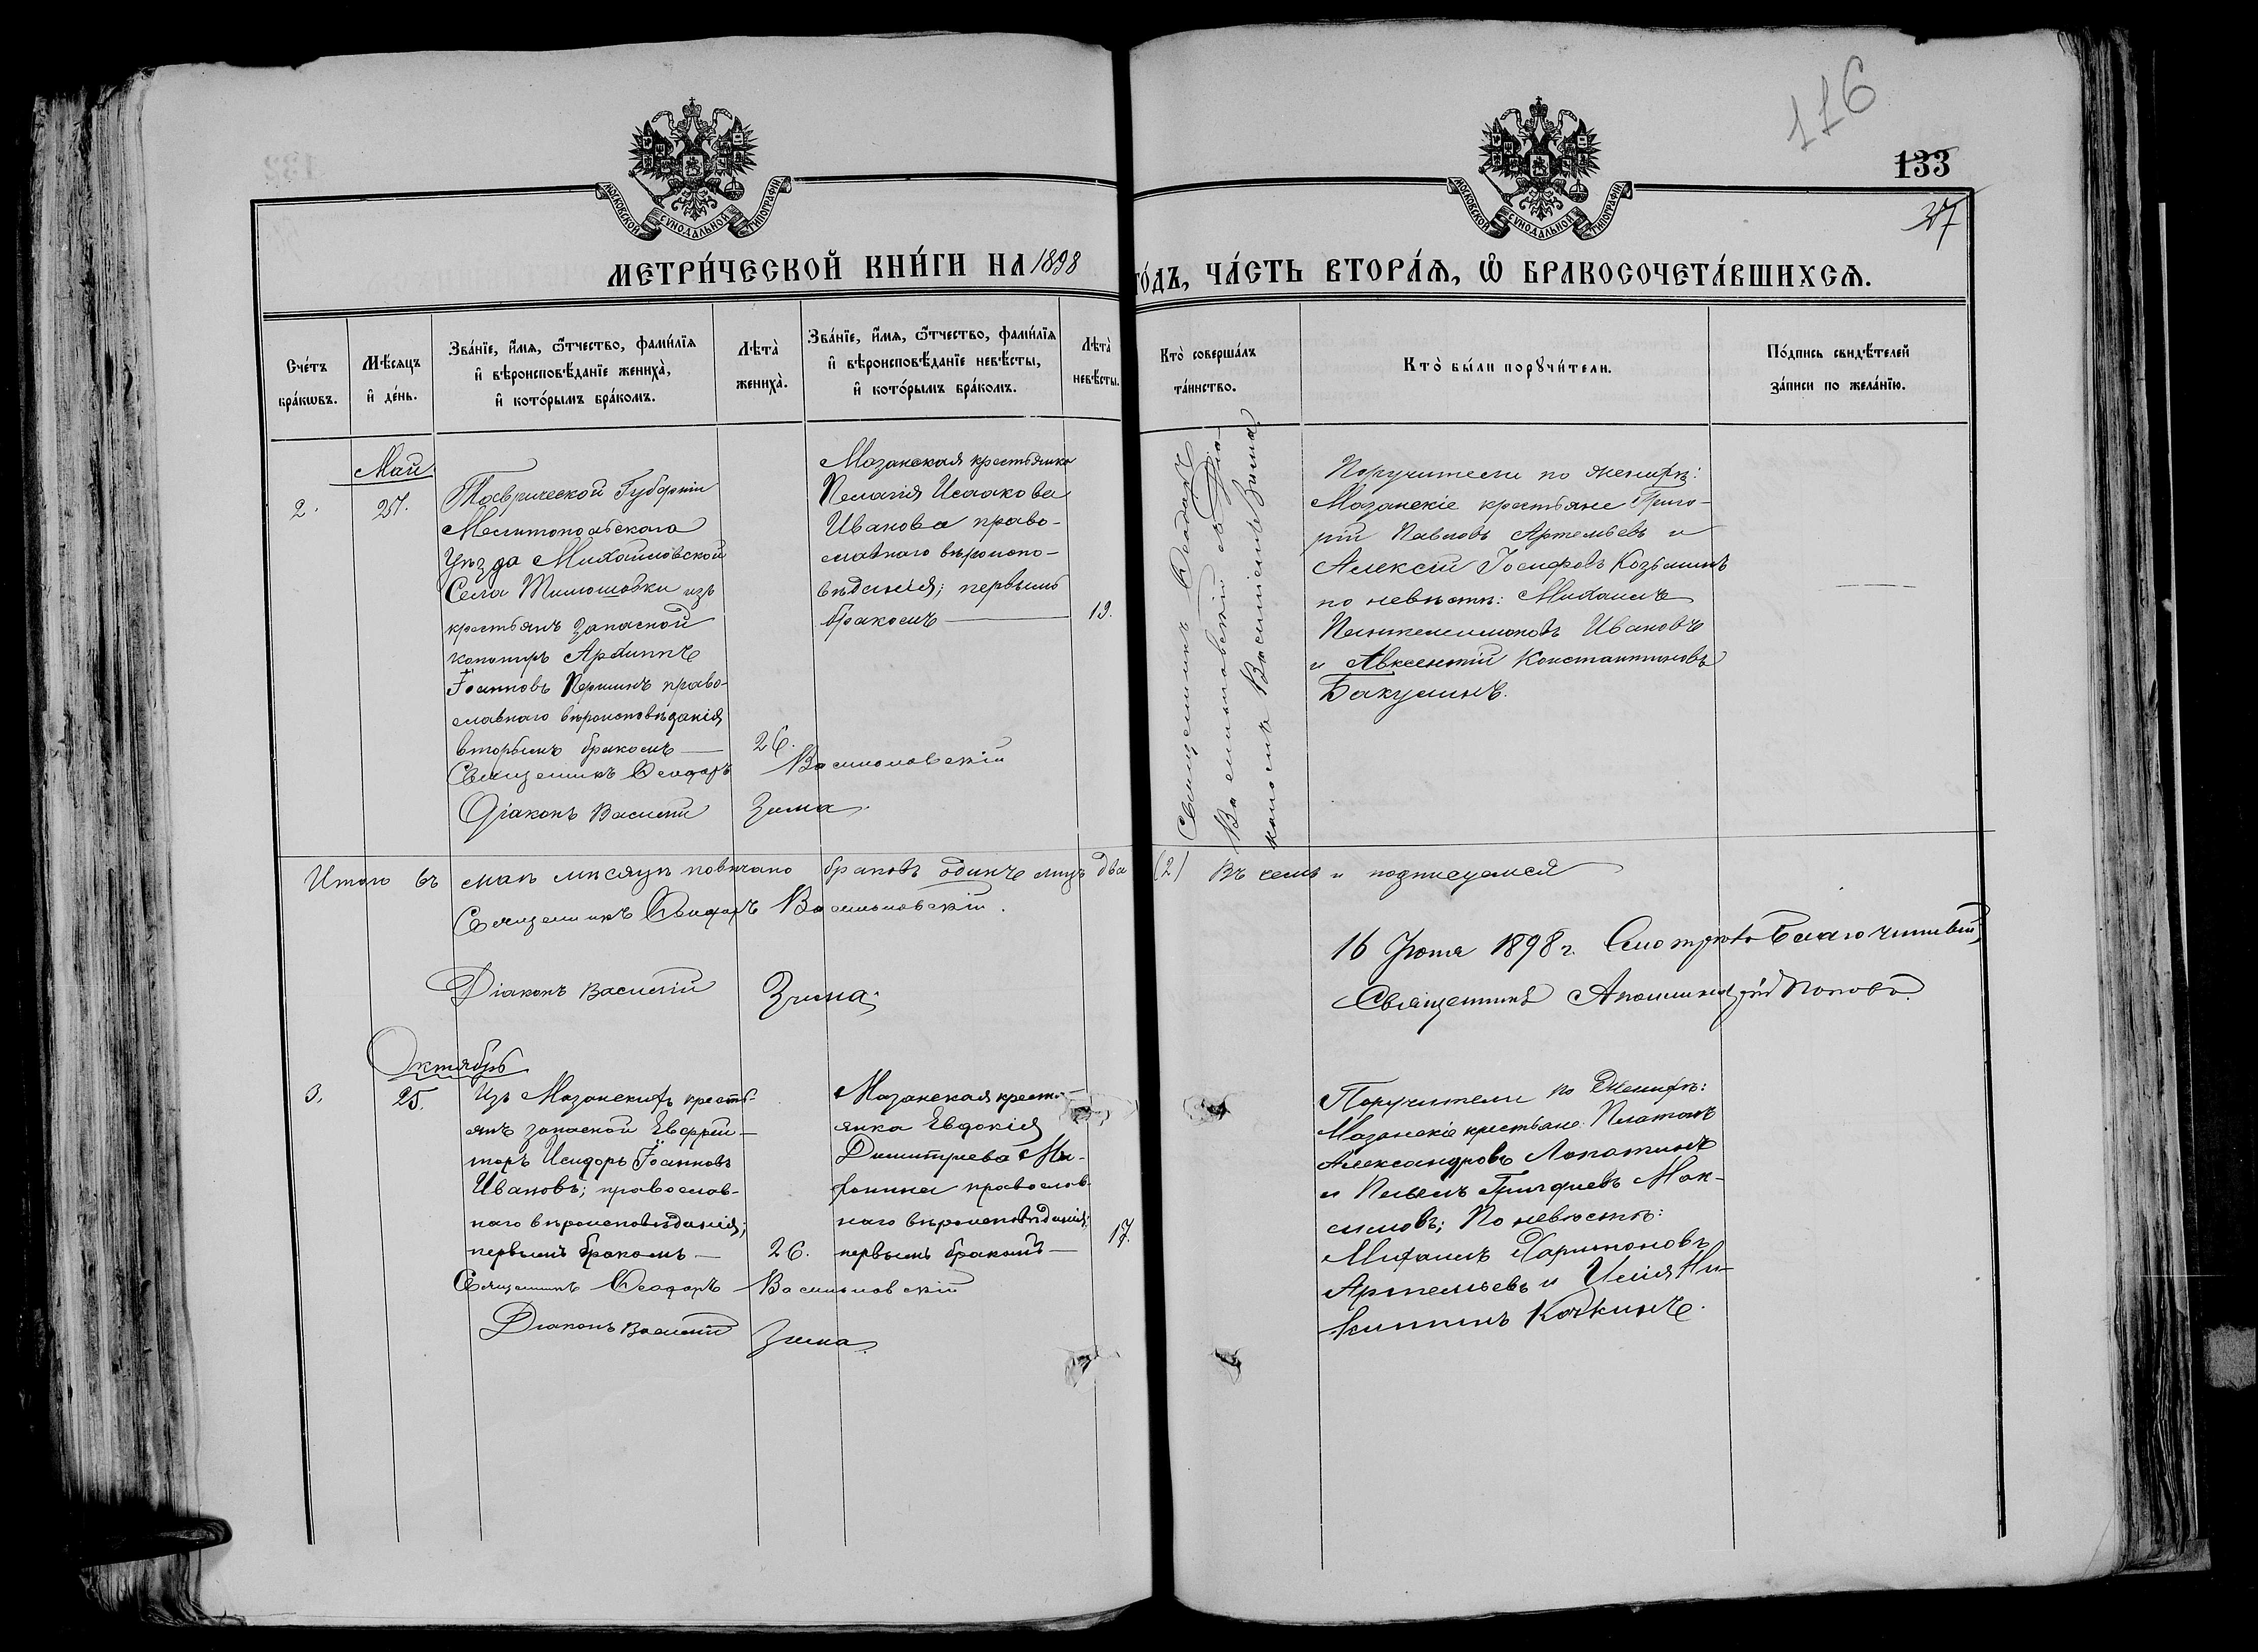 116
133
37
МОСКОВСКОЙ СѴНОДАЛЬНОЙ ТИПОГРАФІИ
МОСКОВСКОЙ СѴНОДАЛЬНОЙ ТИПОГРАФІИ
МЕТРИ́ЧЕСКОЙ КНИ́ГИ НА 1898 ГО́ДЪ, ЧА́СТЬ ВТОРА́Ѧ, Ѡ҆ БРАКОСОЧЕТА́ВШИХСѦ.
Сче́тъ
бра́кѡвъ.
Мѣ́сяцъ
и҆ де́нь.
Зва́нїе, и҆́мѧ, ѻ҆́тчество, фами́лїѧ
и҆ вѣроисповѣ́данїе жениха̀,
и҆ кото́рымъ бра́комъ.
Лѣта̀
жениха̀.
Зва́нїе, и҆́мѧ, ѻ҆́тчество, фами́лїѧ
и҆ вѣроисповѣ́данїе невѣ́сты,
и҆ кото́рымъ бра́комъ.
Лѣта̀
невѣ́сты.
Кто̀ соверша́лъ
та́инство.
Кто̀ бы́ли порꙋчи́тели.
По́дпись свидѣ́телей
за́писи по жела́нїю.
Май
2.
27.
Таврической Губерніи
Мелитопольскаго
Уѣзда Михайловской
Села Тимошовки изъ
крестьянъ запасной
Архиппъ
Іоанновъ Першинъ право-
славнаго вѣроисповѣданія
вторымъ бракомъ —
26.
Мазанская крестьянка
Пелагія Исаакова
Иванова право-
славнаго вѣроиспо-
вѣданія; первымъ
бракомъ —
19.
Священникъ Ѳеодоръ
Діаконъ Василій Зима.
Священникъ Ѳеодоръ
съ Діа-
кономъ Василіемъ Зима.
Поручители по женихѣ:
Мазанскіе крестьяне Григо-
рій Павловъ Артемьевъ и
Алексій Іосифовъ Козьминъ
по невѣстѣ: Михаилъ
Пантелеимоновъ Ивановъ
и Авксентій Константиновъ
Бакулинъ.
Итого въ маѣ мѣсяцѣ повѣнчано браковъ одинъ лицъ два (2) Въ чемъ и подписуемся
Священникъ Ѳеодоръ
Діаконъ Василій Зима.
16 Іюня 1898 г. Смотрѣлъ Благочинный,
Священникъ Аполлинарій Поповъ.
Октябрь
3.
25.
Изъ Мазанскихъ кресть-
янъ запасной Евфрей-
торъ Исидоръ Іоанновъ
Ивановъ; православ-
наго вѣроисповѣданія;
первымъ бракомъ —
26.
Мазанская кресть-
янка Евдокія
Димитріева Ми-
хонина православ-
наго вѣроисповѣданія;
первымъ бракомъ —
17.
Священникъ Ѳеодоръ
Діаконъ Василій Зима.
Поручители по женихѣ:
Мазанскіе крестьяне: Платонъ
Александровъ Лопатинъ
и Павелъ Григоріевъ Мак-
симовъ; По невѣстѣ:
Михаилъ Харитоновъ
Артемьевъ и Илія Ни-
китинъ Кочкинъ.